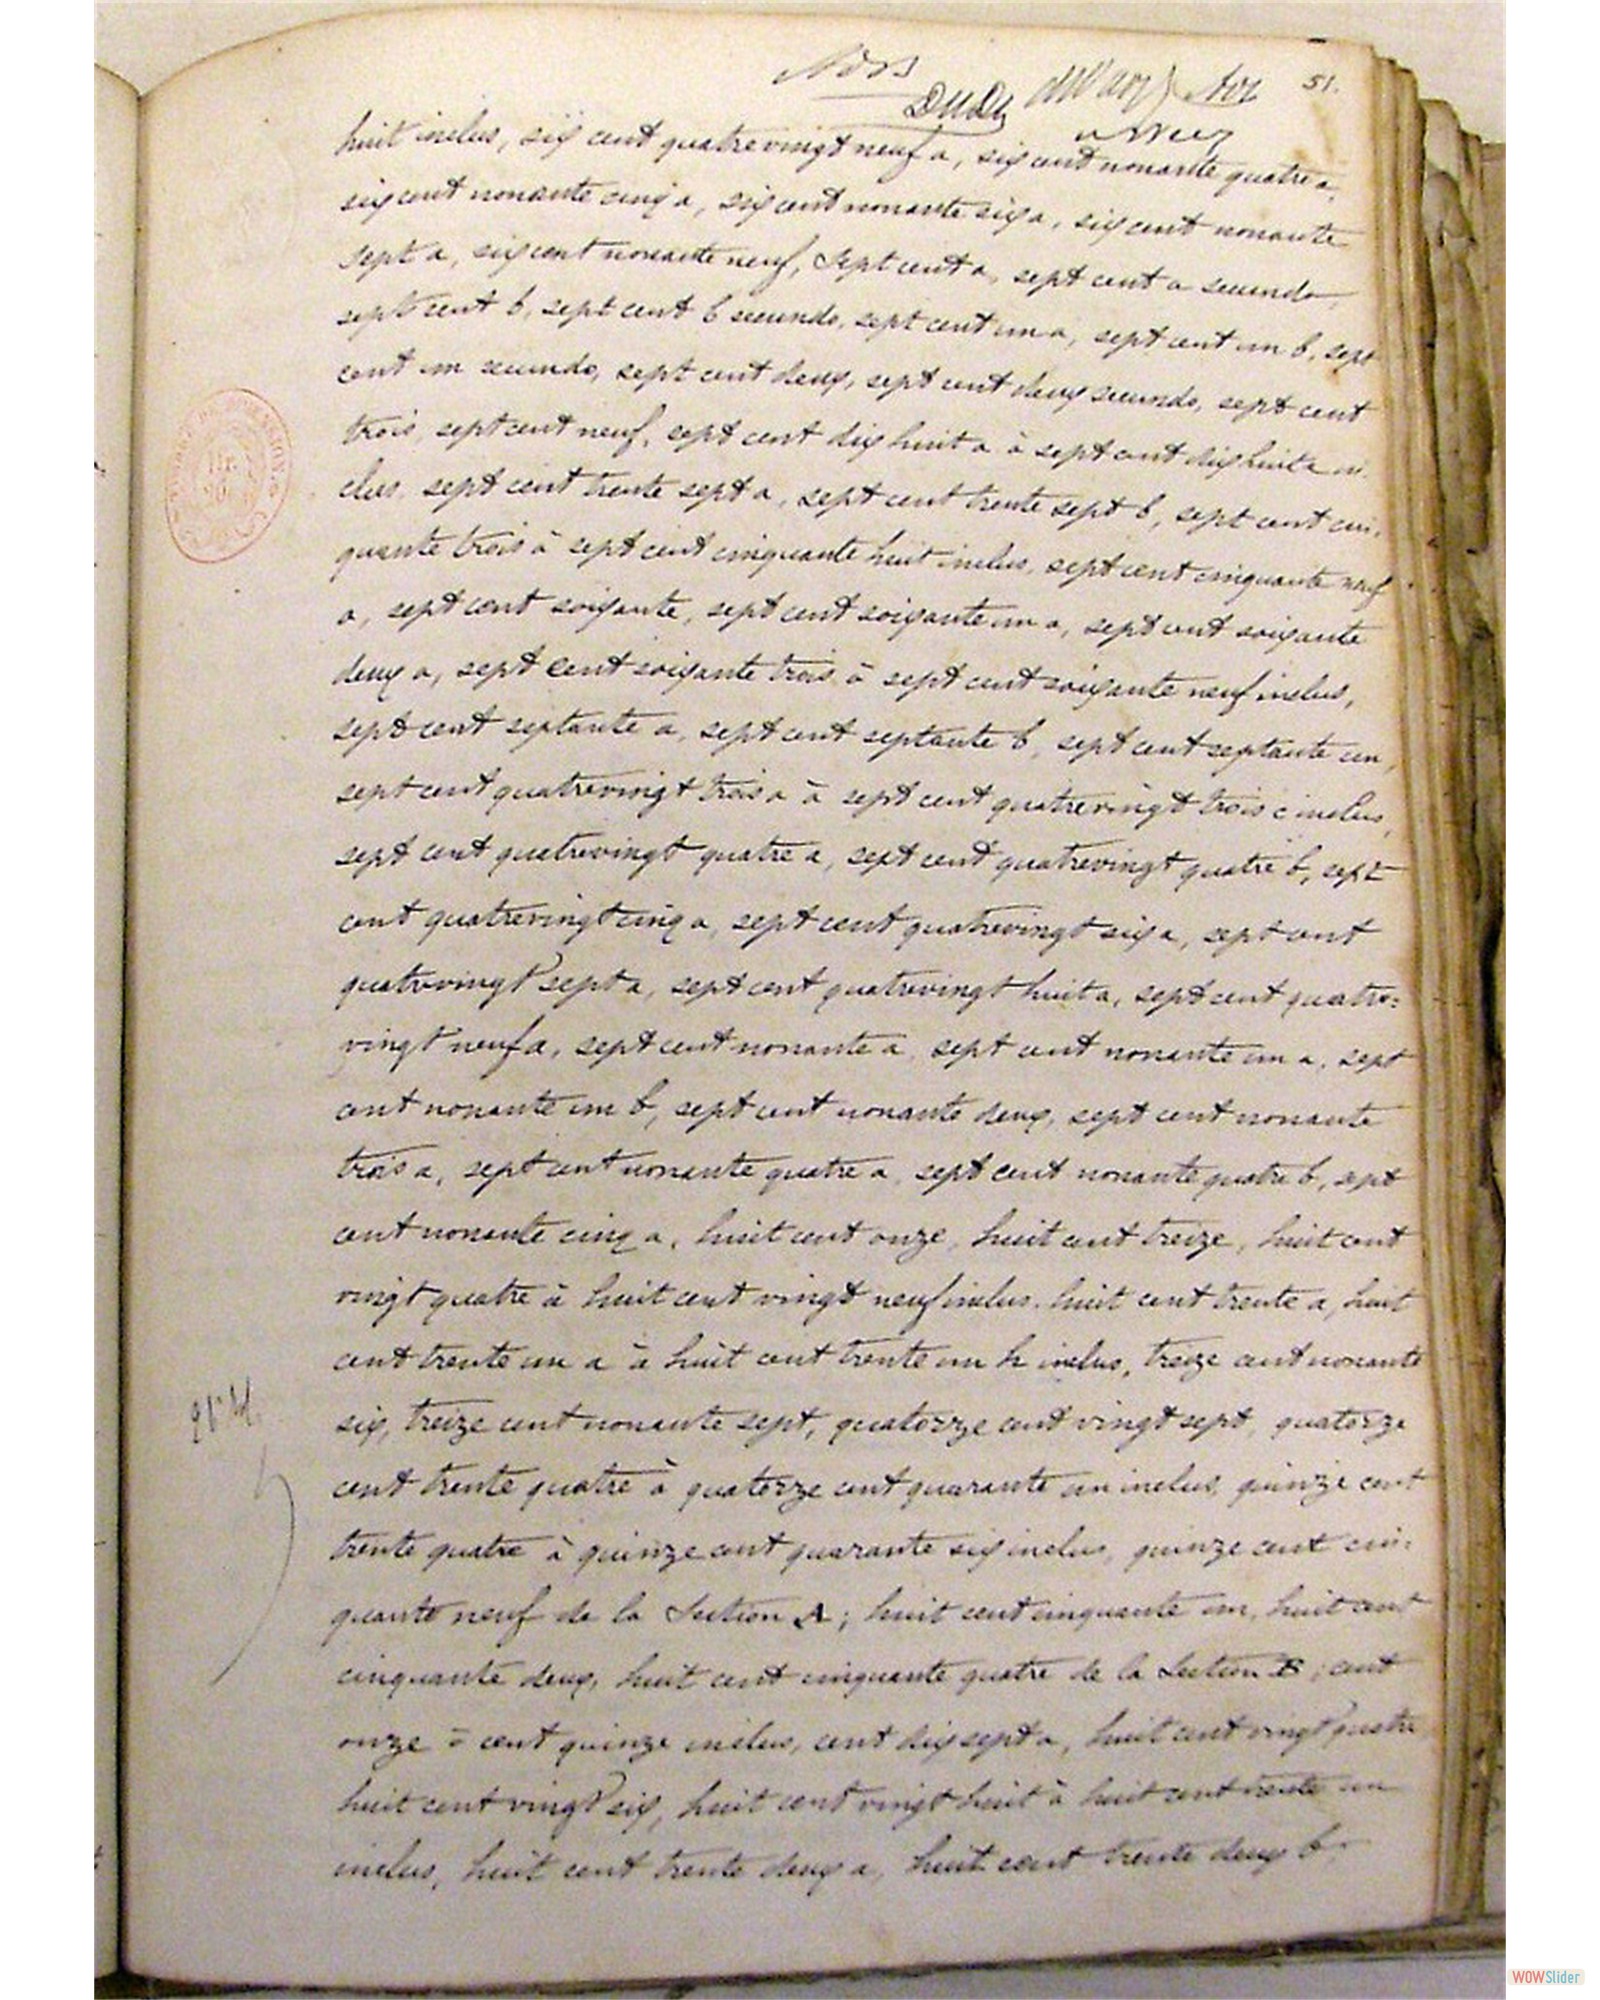 51.
huit inclus, six cent quatrevingt neuf a, six cent nonante quatre a,
six cent nonante cinq a, six cent nonante six a, six cent nonante
sept a, six cent nonante neuf, Sept cent a, sept cent a secundo,
sept cent b, sept cent b secundo, sept cent un a, sept cent un b, sept
cent un secundo, sept cent deux, sept cent deux secundo, sept cent
trois, sept cent neuf, sept cent dix huit a à sept cent dix huit in
clus, sept cent trente sept a, sept cent trente sept b, sept cent cin-
quante trois à sept cent cinquante huit inclus, sept cent cinquante neuf
a, sept cent soixante, sept cent soixante un a, sept cent soixante
deux a, sept cent soixante trois à sept cent soixante neuf inclus,
sept cent septante a, sept cent septante b, sept cent septante un,
sept cent quatrevingt trois a à sept cent quatrevingt trois c inclus,
sept cent quatrevingt quatre a, sept cent quatrevingt quatre b, sept
cent quatrevingt cinq a, sept cent quatrevingt six a, sept cent
quatrevingt sept a, sept cent quatrevingt huit a, sept cent quatre=
vingt neuf a, sept cent nonante a, sept cent nonante un a, sept
cent nonante un b, sept cent nonante deux, sept cent nonante
trois a, sept cent nonante quatre a, sept cent nonante quatre b, sept
cent nonante cinq a, huit cent onze, huit cent treize, huit cent
vingt quatre à huit cent vingt neuf inclus, huit cent trente a, huit
cent trente un a à huit cent trente un h inclus, treize cent nonante
six, treize cent nonante sept, quatorze cent vingt sept, quatorze
cent trente quatre à quatorze cent quarante un inclus, quinze cent
trente quatre à quinze cent quarante six inclus, quinze cent cin=
quante neuf de la Section A; huit cent cinquante un, huit cent
cinquante deux, huit cent cinquante quatre de la Section B; cent
onze à cent quinze inclus, cent dix sept a, huit cent vingt quatre
huit cent vingt six, huit cent vingt huit à huit cent trente un
inclus, huit cent trente deux a, huit cent trente deux b
WOWSlider